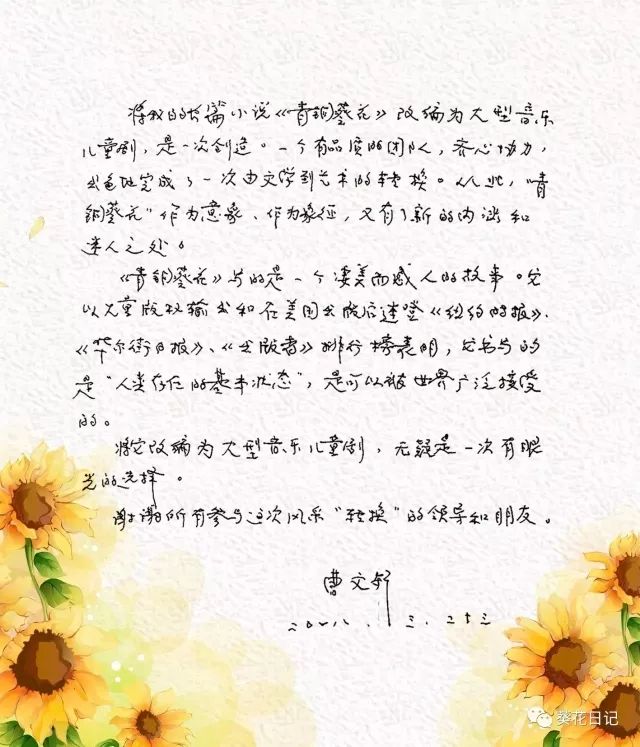 将我的长篇小说《青铜葵花》改编为大型音乐
儿童剧，是一次创造。一个有品质的团队，齐心协力，
出色地完成了一次由文学到艺术的转换。从此，“青
铜葵花”作为意象、作为象征，又有了新的内涵和
迷人之处。
《青铜葵花》写的是一个凄美而感人的故事。它
以大量版权输出和在美国出版后连登《纽约时报》、
《华尔街日报》、《出版者》排行榜表明，它书写的
是“人类存在的基本状态”，是可以被世界广泛接受
的。
将它改编为大型音乐儿童剧，无疑是一次有眼
光的选择。
谢谢所有参与这次风采“转换”的领导和朋友。
曹文轩
二〇一八．三．二十三
葵花日记